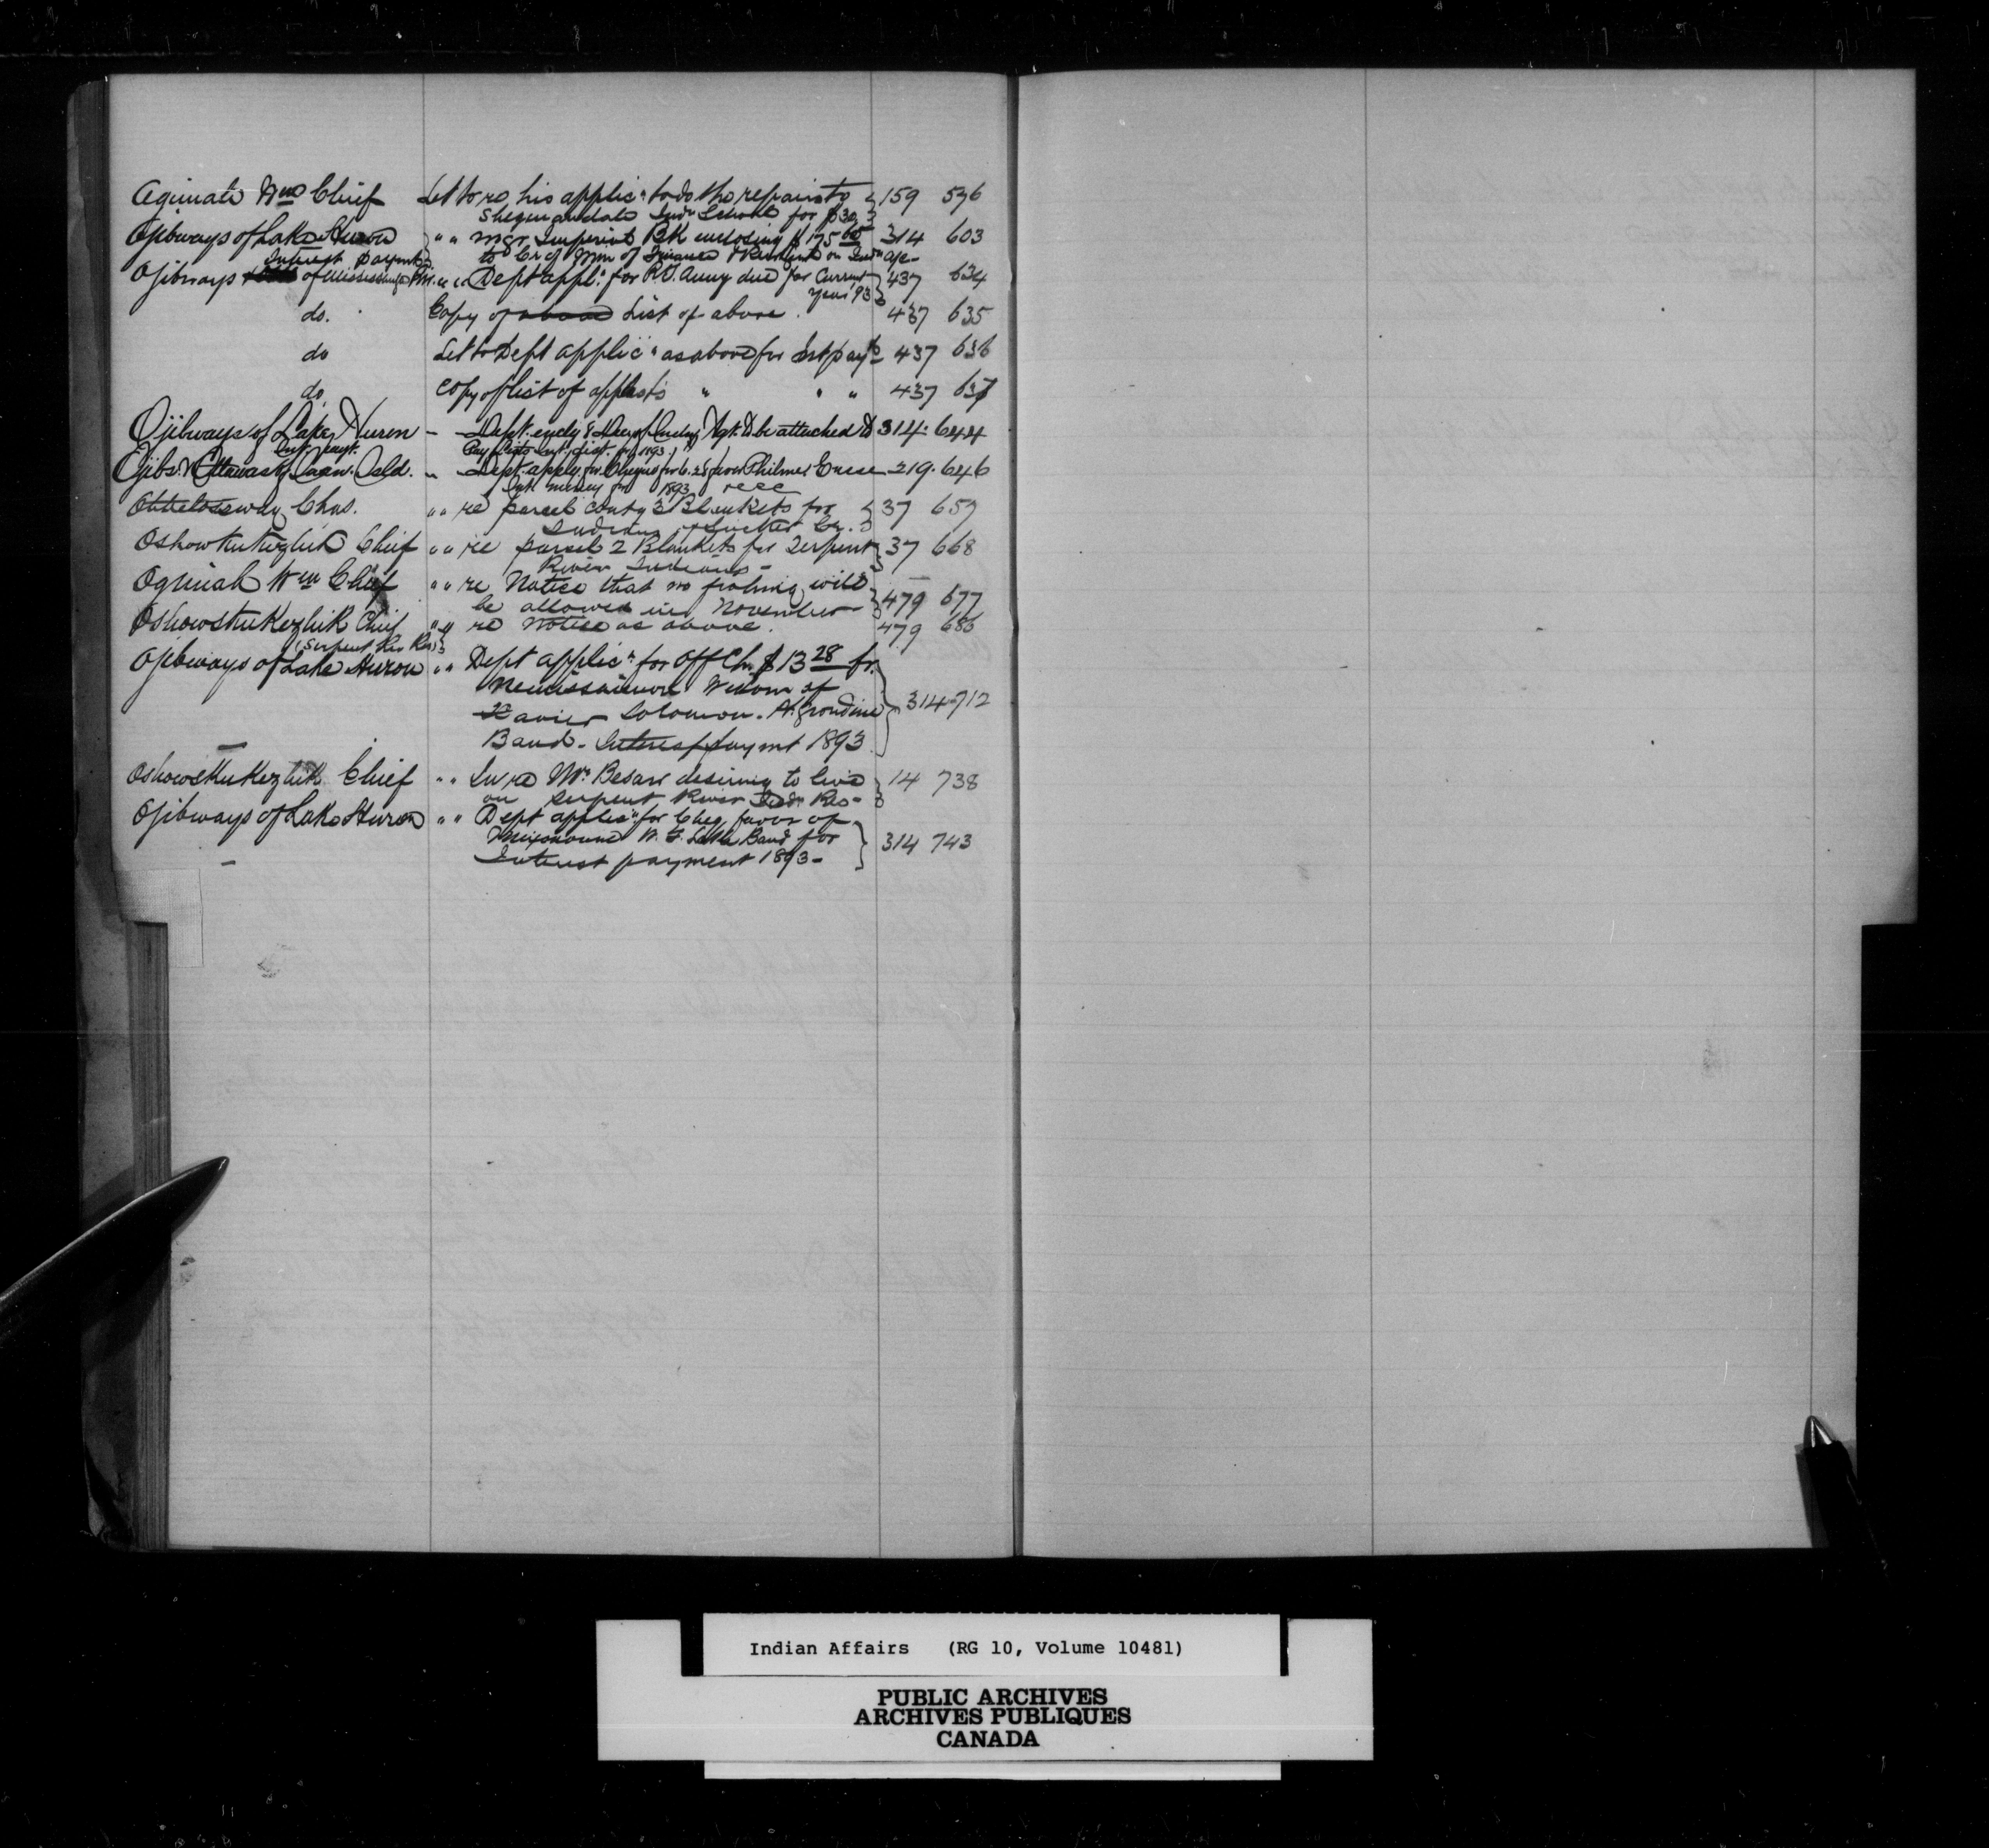 Oginah Wm Chief Let to re his applic" to do the repairs to 159 596
Sheguiandah Indn School for $30
Ojibways of Lake Huron " " Mgr Imperial Bk enclosing $175 60 314 603
Interest Payment to Cr of Min of Finance & on Indn a/c
Ojibways of Mississauga " " Dept appl" for R.T. Anny due for Current 437 634
year '93
do. Copy of List of above. 437 635
do Let to Dept applic" as above for Int paymt 437 636
do. Copy of list of " " " 437 637
Ojibways of Lake Huron - Dept. encly 8 to be attached to 314. 644
Int. paymt. Pay lists int. dist. for 1893.
Ojibs. & Ottawas of " Dept. apply for Cheque for 6.25 favor Philmel 219. 646
Int. money for 1893
Chas. " " re parcel contg 3 Blankets for 37 659
Indians of Sucker Cr.
Oshowskukezhik Chief " " re parcel 2 Blankets for Serpent 37 668
River Indians -
Oginah Wm Chief " " re Notice that no fishing will 479 677
be allowed in November
Oshowskukezhik Chief " " re notice as above. 479 686
(Serpent Riv Res)
Ojibways of Lake Huron " " Dept applic" for Off Ch. $13 28 fr.
Widow of
Xavier Solomon. 314 712
Band - Interest paymt 1893
Oshowskukezhik Chief " " In re Mr desiring to live 14 738
on Serpent River Indn Res -
Ojibways of Lake Huron " " Dept applic" for Cheq favor of
W. F. Lake Band for 314 743
Interest payment 1893 -
Indian Affairs (RG 10, Volume 10481)
PUBLIC ARCHIVES
ARCHIVES PUBLIQUES
CANADA